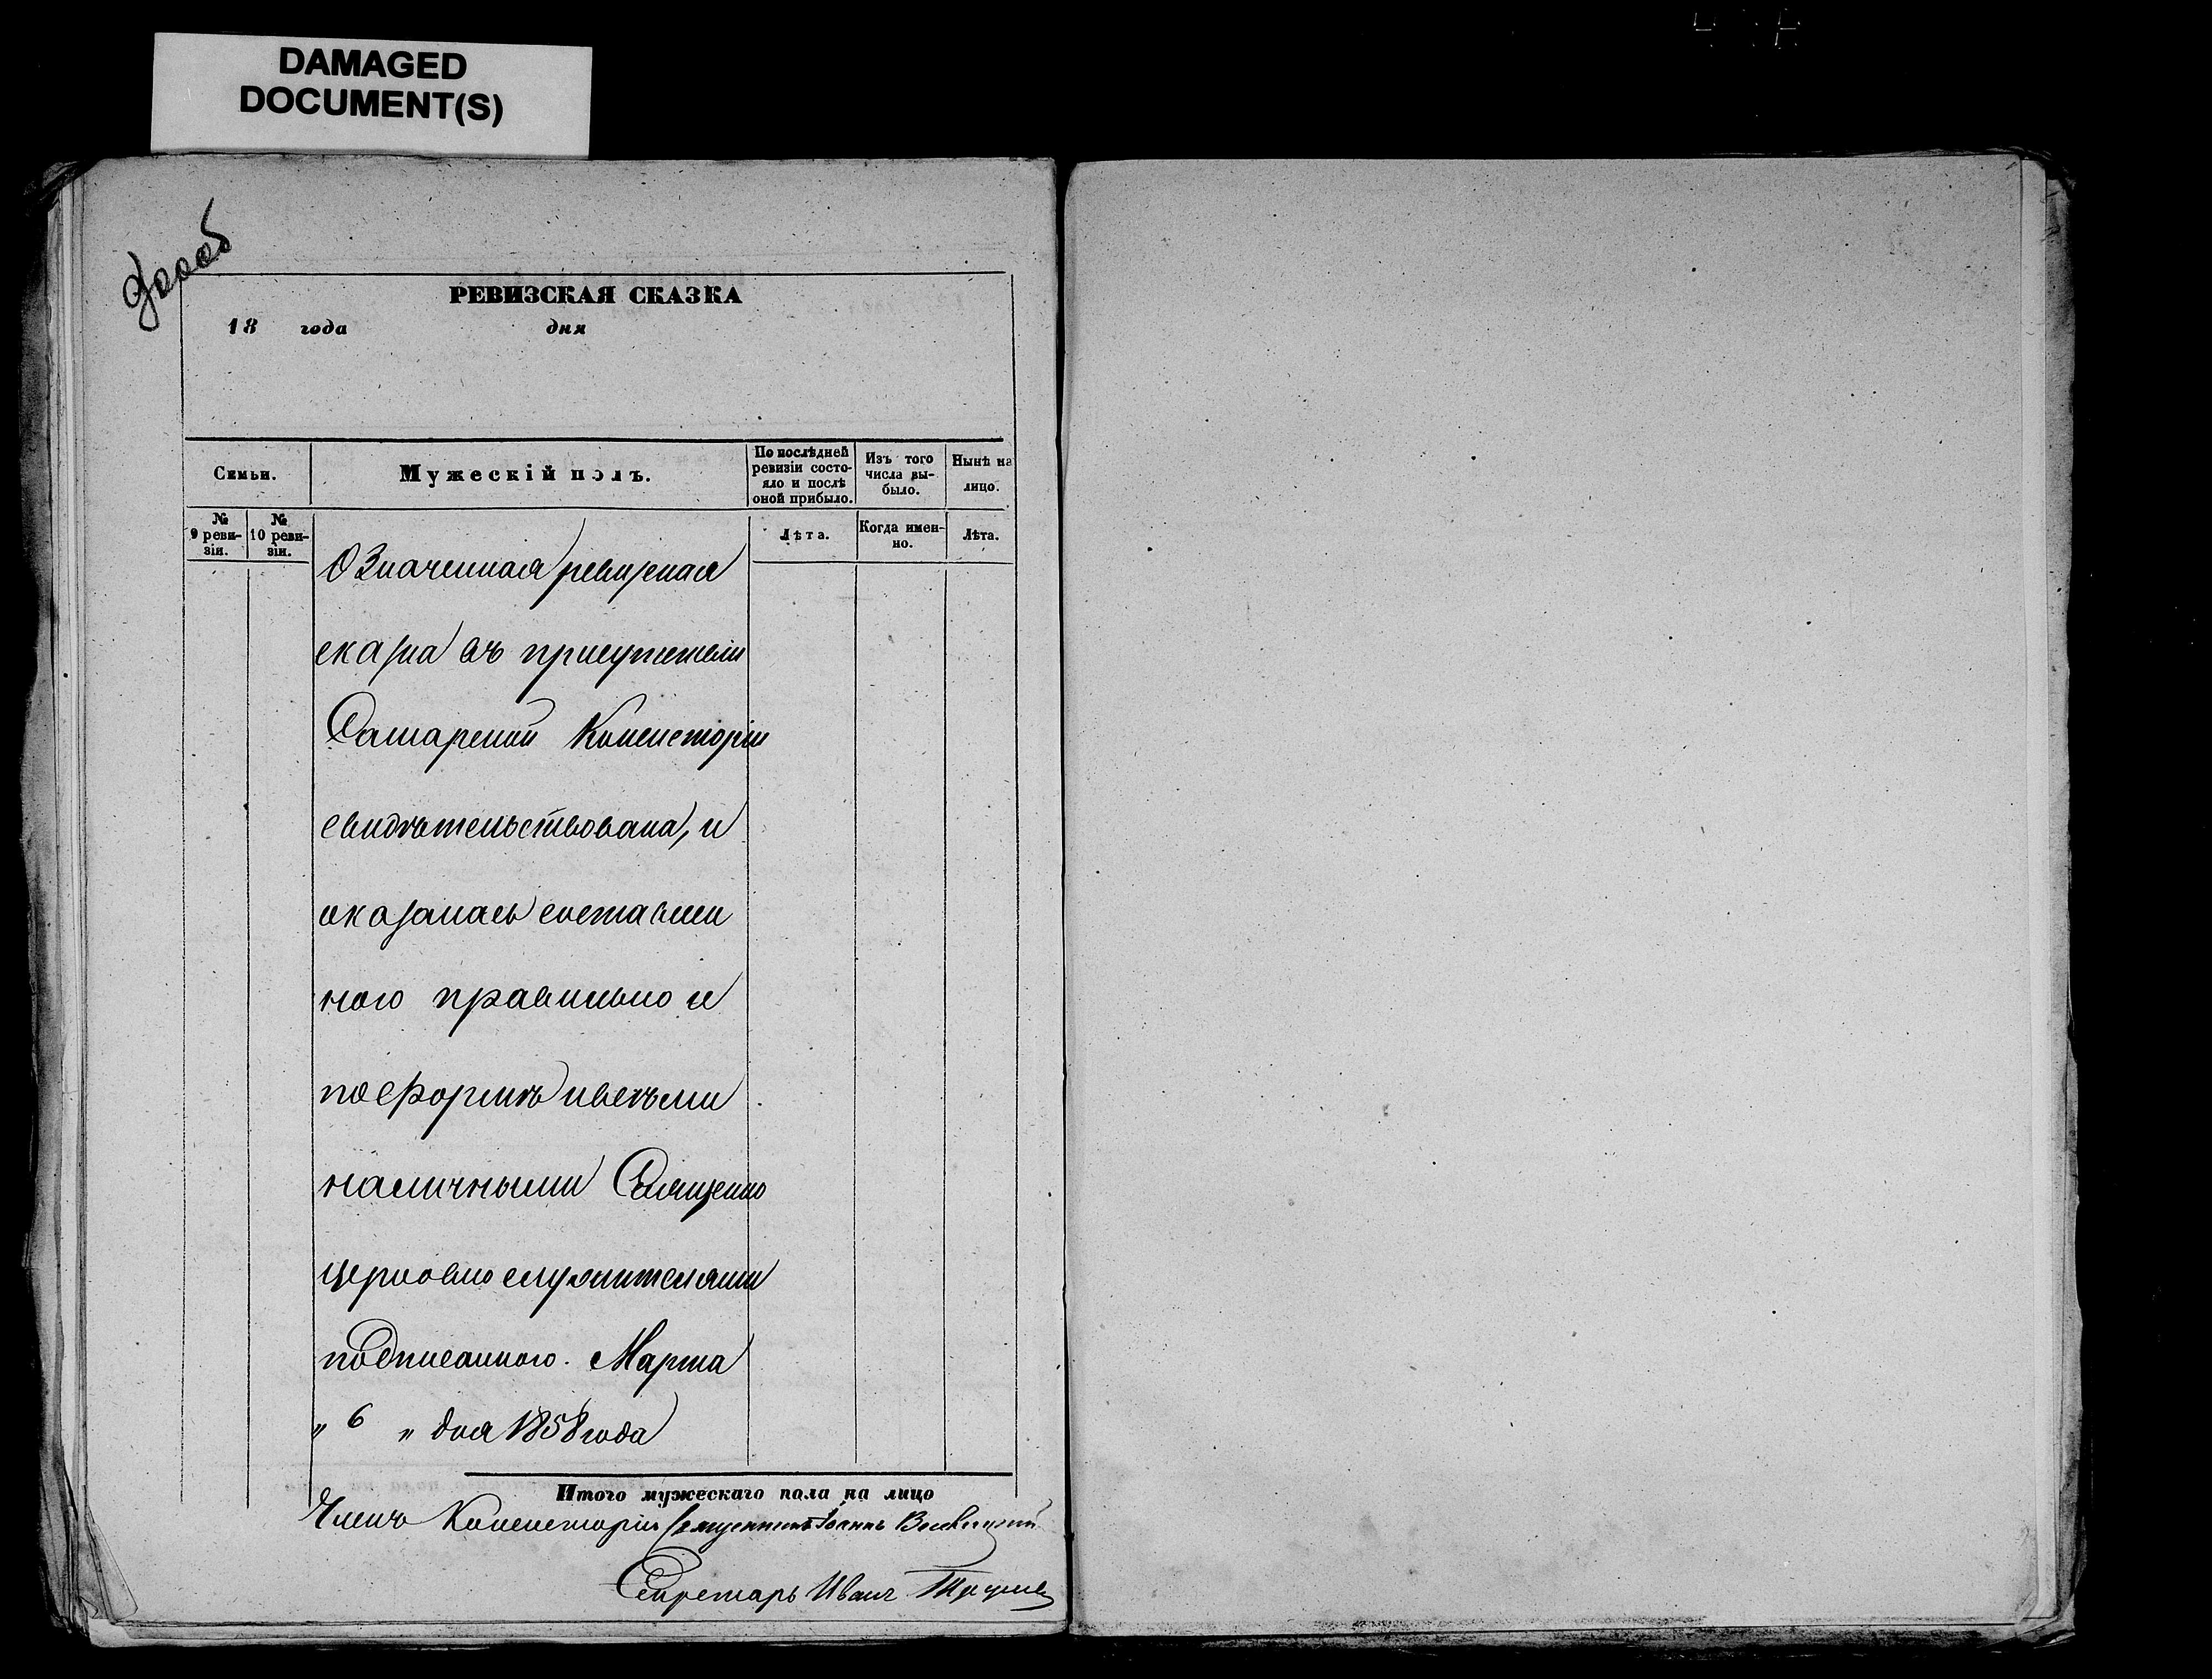 DAMAGED
DOCUMENT(S)
РЕВИЗСКАЯ СКАЗКА
18 года дня
Семьи.
Мужескій полъ.
По послѣдней ревизіи состояло и послѣ оной прибыло.
Изъ того числа выбыло.
Нынѣ на лицо.
№ 9 ревизіи.
№ 10 ревизіи.
Лѣта.
Когда именно.
Лѣта.
Означенная ревизская
сказка въ присутствіи
Самарской Консисторіи
свидѣтельствована, и
оказалась составлен
ного правильно и
по формѣ и всѣми
наличными Священно
церковно служителями
подписанного. Марта
„ 6 „ дня 1858 года
Итого мужескаго пола на лицо
Членъ Консисторіи Священникъ Іоаннъ
Секретарь Иванъ